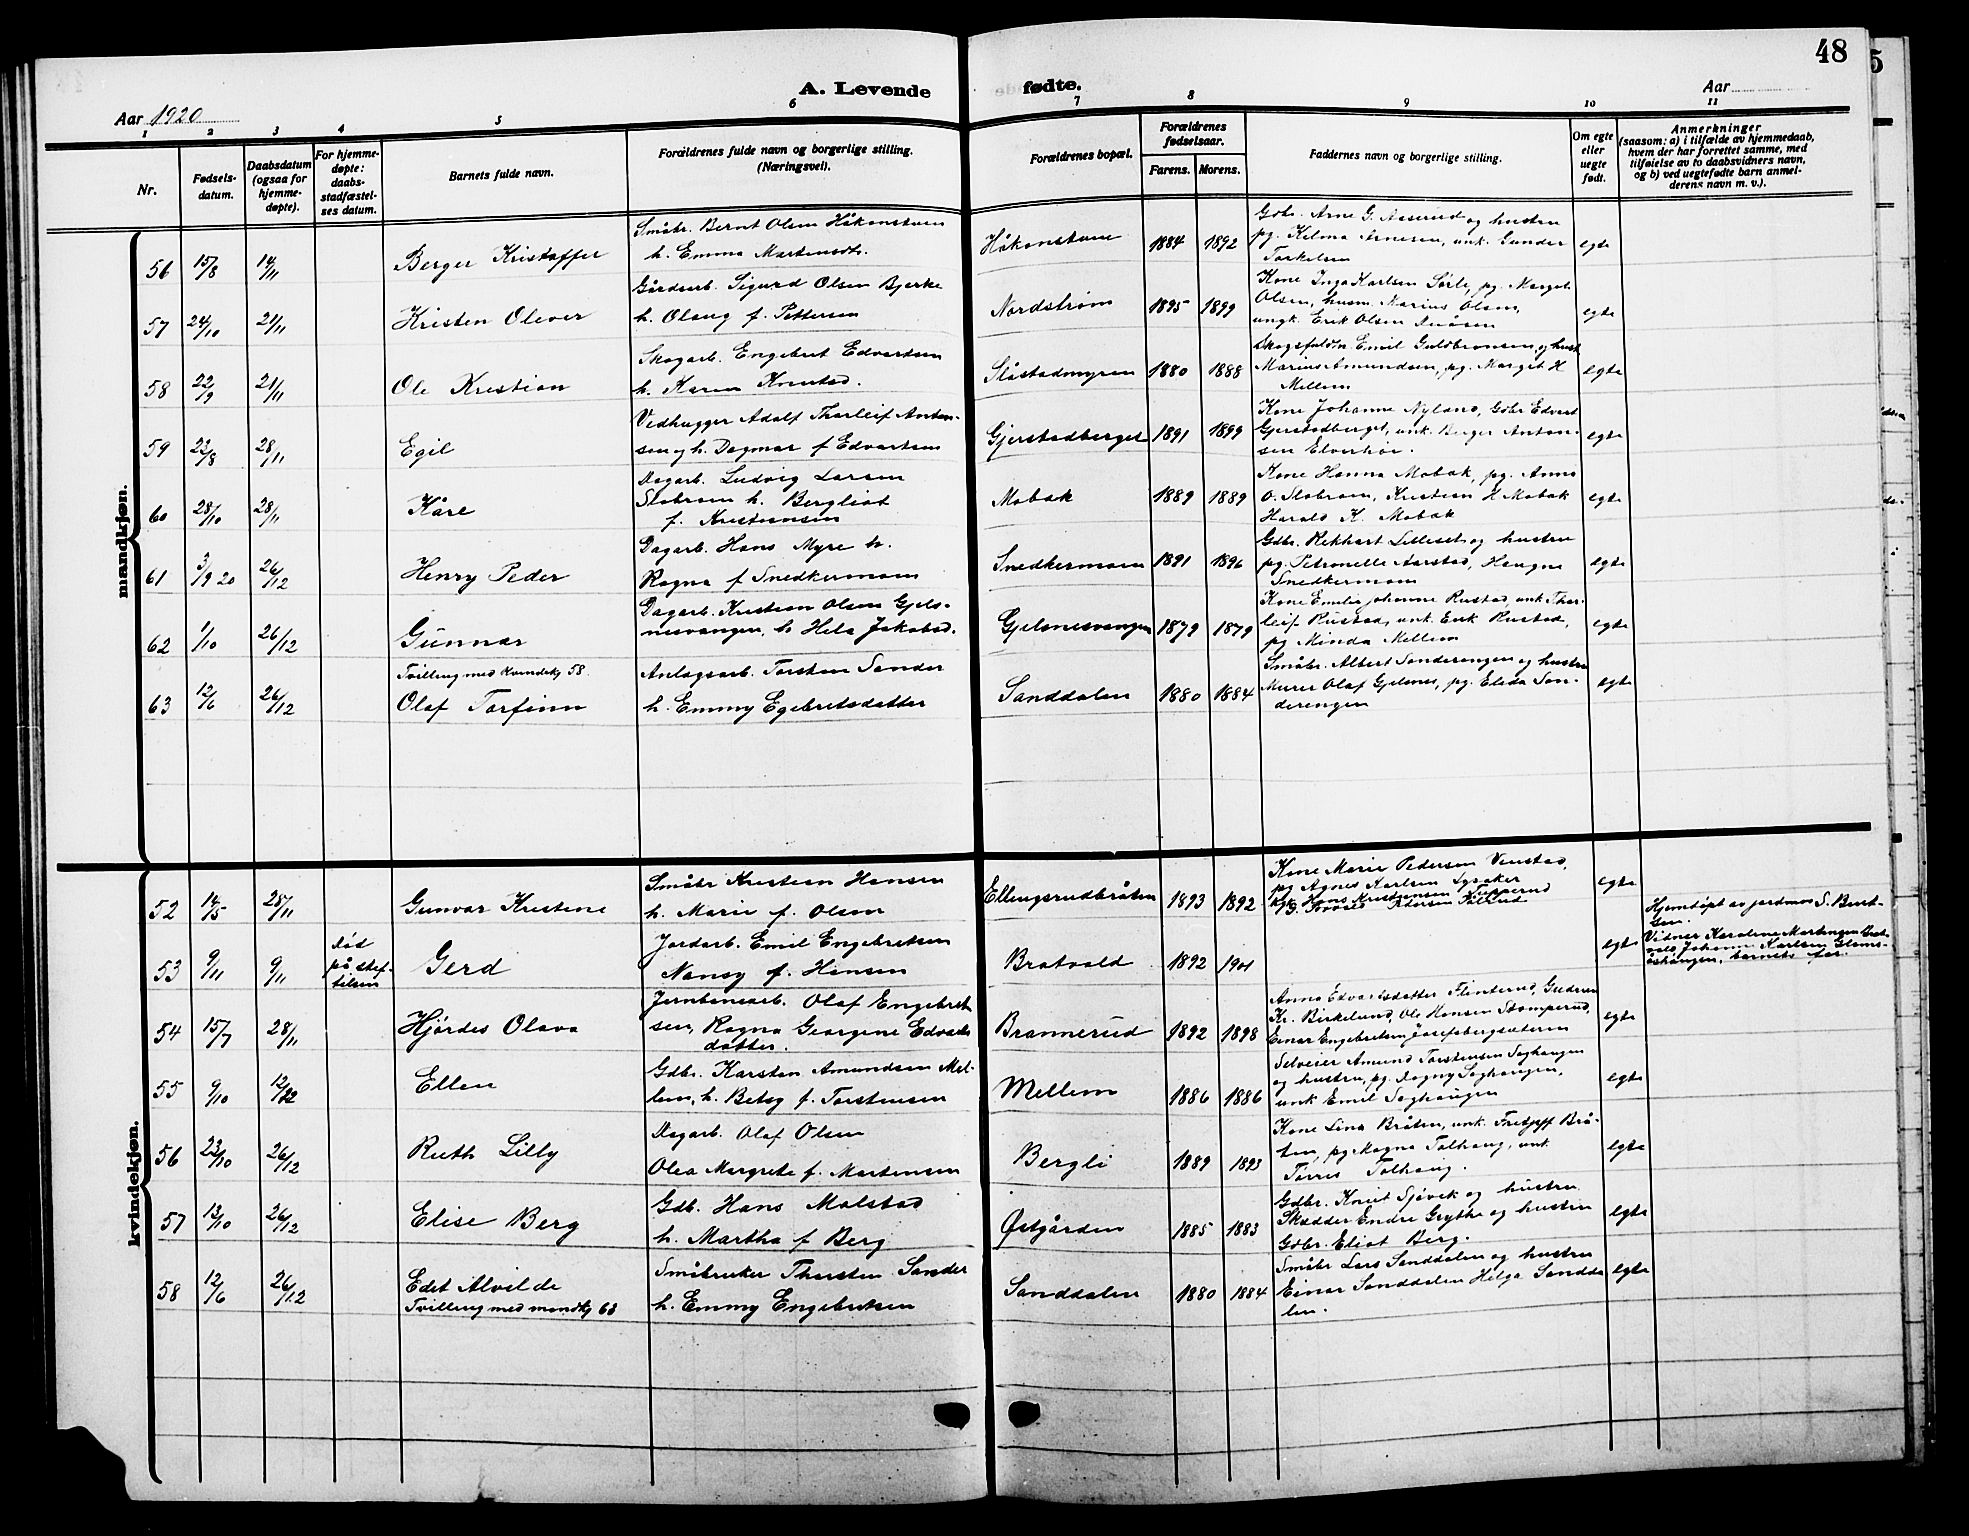 48
5
A. Levende fødte.
Aar 1920
Aar
1 2 3 4 5 6 7 8 9 10 11
Nr.
Fødsels-
datum.
Daabsdatum
(ogsaa for
hjemme-
døpte).
For hjemme-
døpte:
daabs-
stadfæstel-
ses datum.
Barnets fulde navn.
Forældrenes fulde navn og borgerlige stilling.
(Næringsvei).
Forældrenes bopæl.
Forældrenes
fødselsaar.
Farens. Morens.
Faddernes navn og borgerlige stilling.
Om egte
eller
uegte
født.
Anmerkninger
(saasom: a) i tilfælde av hjemmedaab,
hvem der har forrettet samme, med
tilføielse av to daabsvidners navn,
og b) ved uegtefødte barn anmel-
derens navn m. v.).
mandkjøn.
56 15/8 14/11 Berger Kristoffer
Småbr. Bernt Olsen Håkonstuen
h. Emma Martinsdtr.
Håkonstuen 1884 1892
Gbr. Arne G. Aaserud og hustru
pg. Kilma Arnesen, unk. Gunder
Torkelsen
egte
57 24/10 21/11 Kristen Olever
Gårdsarb. Sigurd Olsen Bjerke
h. Olaug f. Pettersen
Nordstrøm 1895 1899
Kone Inga Karlsen Sørli, pg. Margit
Olsen, husm. Marius Olsen,
ungk. Erik Olsen
egte
58 22/9 21/11 Ole Kristian
Skogarb. Engebret Edvardsen
h. Karen Knutsd.
Slåstadmyren 1880 1888
Skogsfuldm Emil Guldbransen og hust
Marius Amundsen, pg. Margit H
Mellem
egte
59 22/8 28/11 Egil
Vedhugger Adolf Tharleif Anton-
sen og h. Dagmar f Edvartsen
Gjerstadberget 1891 1899
Kone Johanne Nyland, Gbr Edvart
Gjerstadberget, unk. Berger Anton-
sen Elverhøi.
egte
60 28/10 28/11 Kåre
Dagarb. Ludvig Larsen
Slobraen h. Bergliot
f. Kristiansen
Mobak 1889 1889
Kone Hanna Mobak, pg. Anna
O. Slobraen, Kristian H Mobak
Harald K. Mobak
egte
61 3/9 20 26/12 Henry Peder
Dagarb. Hans Myre h.
Ragna f Snedkermoen
Snedkermoen 1891 1896
Gdbr. Rikhart Lilleset og hustru
pg. Petronelle Aarstad, Haugne
Snedkermoen
egte
62 1/10 26/12 Gunnar
Dagarb. Kristian Olsen Gjels-
nesvangen, h Hela Jakobsd.
Gjelsnesvangen 1879 1879
Kone Emilie Johanne Rustad, unk. Thor-
leif Rustad, unk. Erik Rustad,
pg Minda Mellem
egte
Tvilling med kvindekj 58.
63 12/6 26/12 Olaf Torfinn
Anlægsarb. Torsten Sander
h. Emmy Egebretsdatter
Sanddalen 1880 1884
Småbr. Albert Sanderengen og hustru
Murer Olaf Gjelsnes, pg. Elida San-
derengen
egte
kvindekjøn.
52 14/5 28/11 Gunvor Kristine
Småbr Kristian Hansen
h. Marie f. Olsen
Ellingsrudbråten 1893 1892
Kone Marie Pedersen Venstad,
pg Agnes Karlsen Lysaker
Hans Kristiansen Tupperud
egte
53 9/11 9/11
død
på stif-
telsen
Gerd
Jordarb. Emil Engebretsen
Nansy f. Hansen
Bratvold 1892 1901
egte
Hjemdøpt av jordmor S. Bunt-
Gen.
Vidner Karoline Martinsen Brat-
vold, Johanne Karlsen Gloms-
åshaugen, barnets far.
54 15/7 28/11 Hjørdes Olava
Jernbanearb. Olaf Engebret
sen, Ragna Georgine Edvards
datter.
Brannerud 1892 1898
Anna Edvardsdatter Flinterud, Gudrun
Kr. Birkelund, Ole Hansen Stomperud,
Einar Engebretsen Josefsbergsæteren
egte
55 9/10 12/12 Ellen
Gdbr. Karsten Amundsen Mel-
lem, h. Betsy f. Torstensen
Mellem 1886 1886
Selveier Amund Torstensen Saghaugen
og hustru, pg. Dagny Saghaugen,
unk Emil Saghaugen
egte
56 23/10 26/12 Ruth Lilly
Dagarb. Olaf Olsen
Olea Margrete f. Martinsen
Bergli 1889 1893
Kone Lina Bråten, unk. Fretjoff Brå-
ten, pg Magna Tolhaug, unk.
Torris Tolhaug.
egte
57 13/10 26/12 Elise Berg
Gdb. Hans Molstad
h. Martha f Berg
Østgården 1885 1883
Gdbr. Knut Sjøvek og hustru
Skrædder Endre Grytho og hustru
Gdbr. Eliot Berg.
egte
58 12/6 26/12 Edet Alvilde
Tvilling med mandkj 63
Småbruker Thorsten Sander
h. Emmy Engebretsen
Sanddalen 1880 1884
Småbr Lars Sanddalen og hustru
Einar Sanddalen Helga Sandda
len.
egte